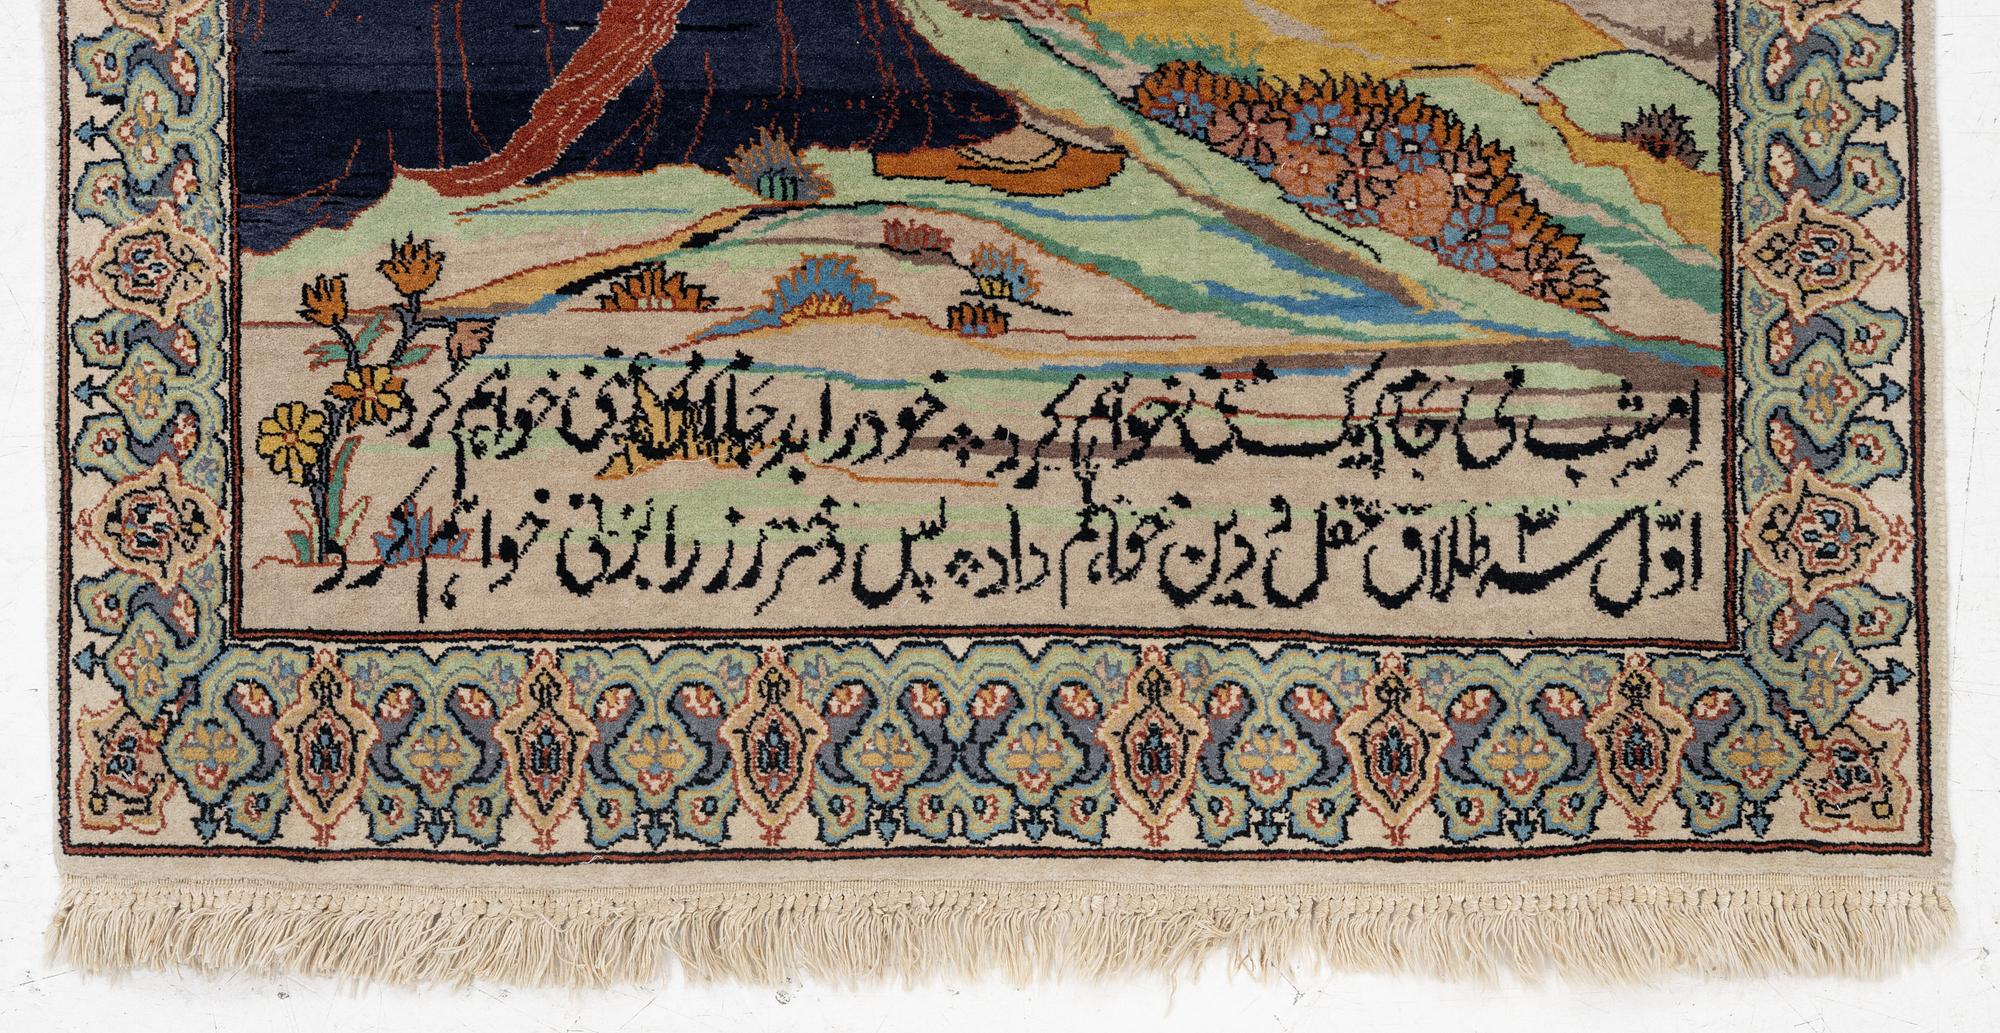 امشب می جام یک منی خواهم کرد خود را به دو جام می غنی خواهم کرد
اول سه طلاق عقل و دین خواهم داد پس دختر رز را بزنی خواهم کرد